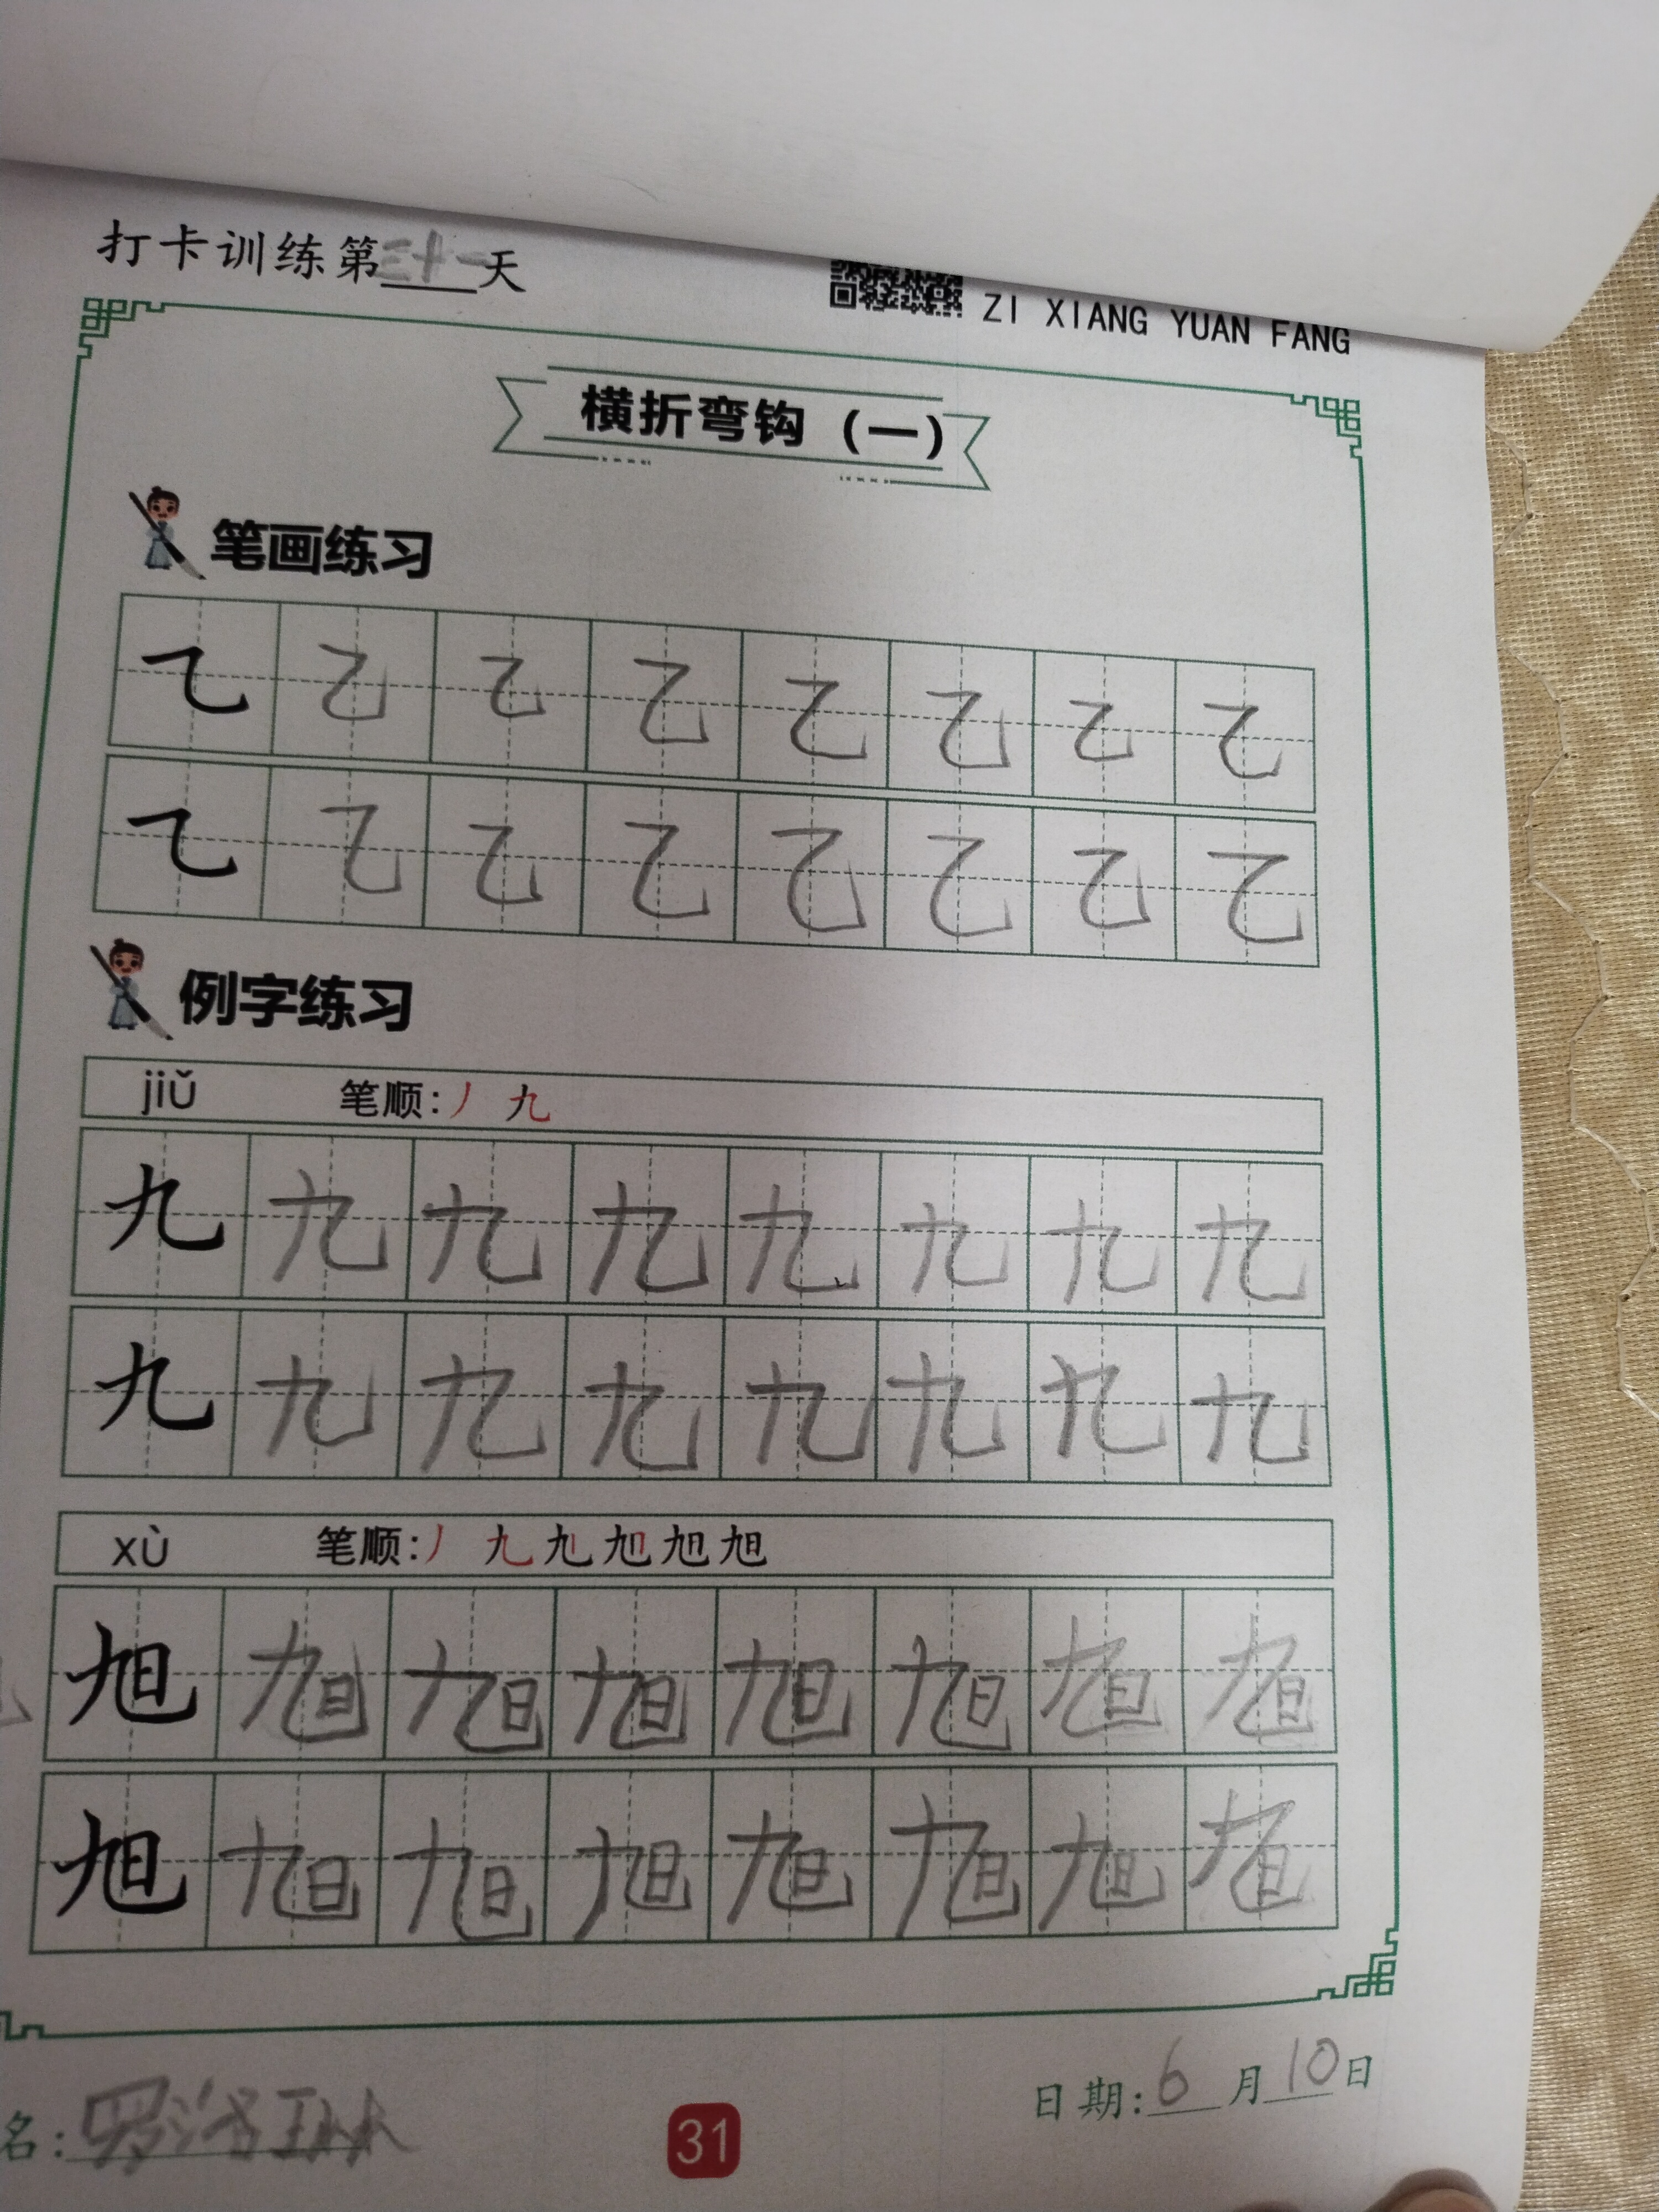 打卡训练第三十一天
ZI XIANG YUAN FANG
横折弯钩（一）
笔画练习
乙 乙 乙 乙 乙 乙 乙 乙
乙 乙 乙 乙 乙 乙 乙 乙
例字练习
jiǔ 笔顺：丿 九
九 九 九 九 九 九 九 九
九 九 九 九 九 九 九 九
xù 笔顺：丿 九 旭 旭 旭 旭
旭 旭 旭 旭 旭 旭 旭 旭
旭 旭 旭 旭 旭 旭 旭 旭
名：罗洺琳
日期：6月10日
31